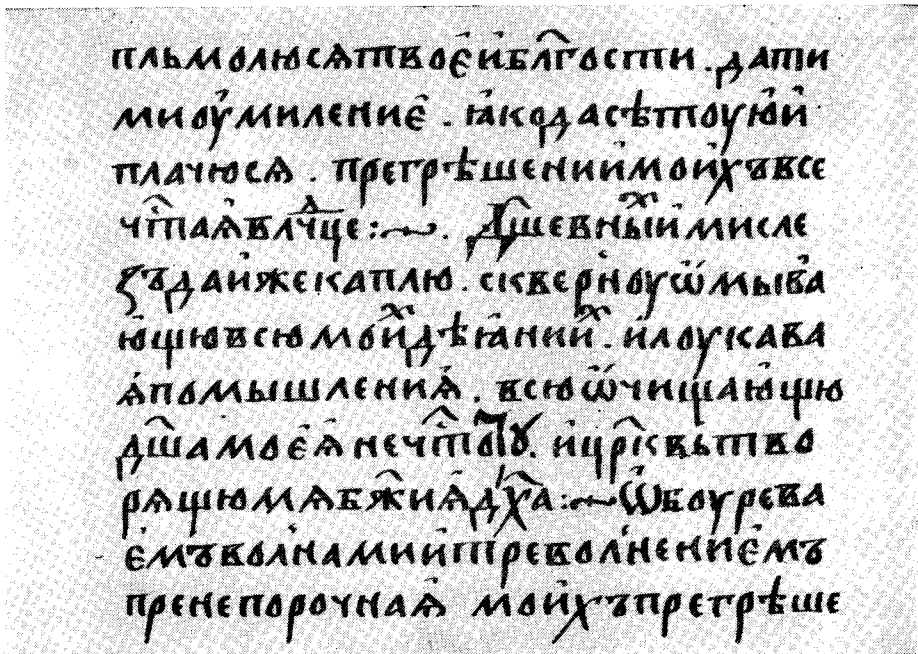 пльмолюсѧтвоєи҆бл҃гости . дати
миоу҆милениє . ꙗ҆кодасѣтоую҆й
плачюсѧ . прегрѣшении҆мои҆хъвсе
чⷭ҇таѧ҆влⷣчце :~ . дш҃евныⷯ҇и҆мисле
зъдаи҆жекаплю . скверноуѿмыва
ю҆щювсюмоиⷯ҇дѣꙗ҆нииⷯ҇ . и҆лоукава
ѧ҆помышлениѧ҆ . всюѿчищаю҆щю
дш҃амоєѧ҆нечⷭ҇тотꙋ . и҆цр҃квьтво
рѧщюмѧбж҃иѧ҆дх҃а :~ Ѡ҆боурева
є҆мъволнамии҆треволнениє҆мъ
пренепорочнаѧ҆ мои҆хъпрегрѣше